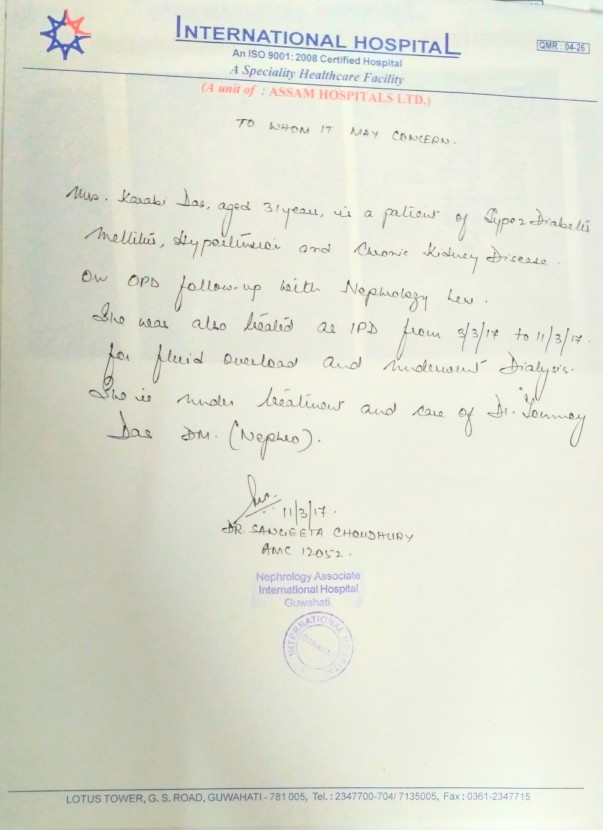 INTERNATIONAL HOSPITAL
QMR : 04-26
An ISO 9001: 2008 Certified Hospital
A Speciality Healthcare Facility
(A unit of : ASSAM HOSPITALS LTD.)
TO WHOM IT MAY CONCERN.
Mrs. Karabi Das, aged 31 years, is a patient of Type 2 Diabetes
Mellitus, Hypertension and Chronic Kidney Disease.
On OPD follow-up with Nephrology
She was also treated as IPD from 3/3/17 to 11/3/17.
for fluid overload and underwent Dialysis.
She is under treatment and care of Dr.
Das DM. (Nephro).
11/3/17.
DR. SANGEETA CHOUDHURY
AMC 12052.
Nephrology Associate
International Hospital
Guwahati.
INTERNATIONAL HOSPITAL
LOTUS TOWER, G. S. ROAD, GUWAHATI - 781 005, Tel. : 2347700-704/ 7135005, Fax : 0361-2347715